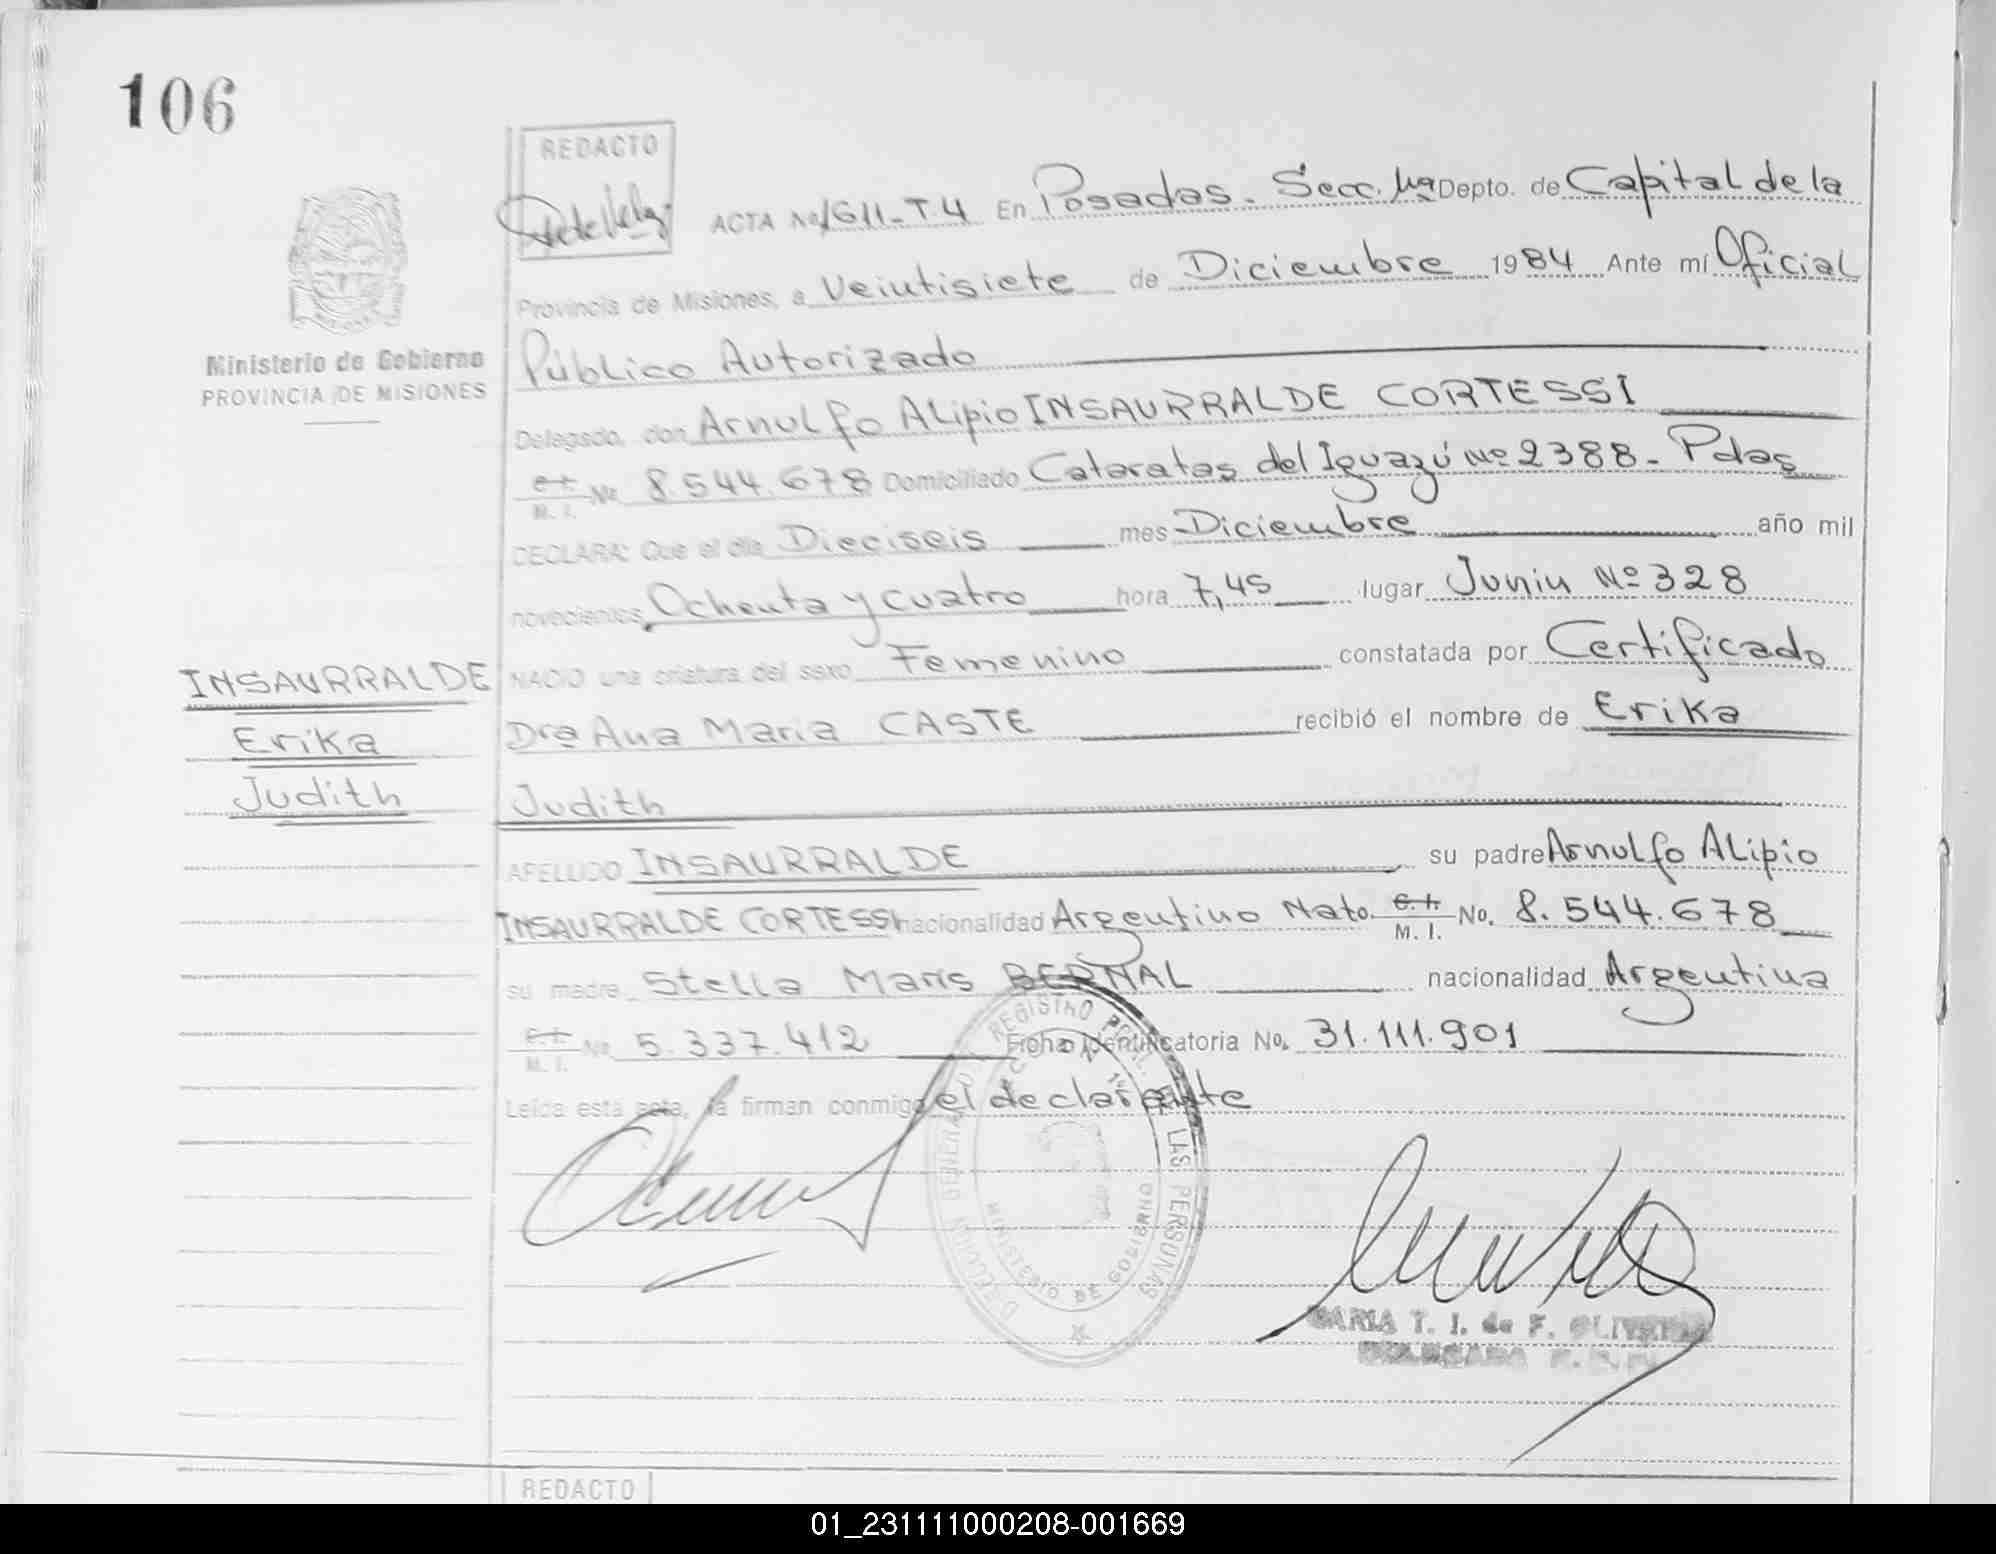 106
REDACTO
ACTA No 1611-T.4 En Posadas. Secc. 1ra Depto. de Capital de la
Provincia de Misiones, a Veintisiete de Diciembre 1984 Ante mí Oficial
Ministerio de Gobierno
PROVINCIA DE MISIONES
Público Autorizado
Delegado, don Arnulfo Alipio INSAURRALDE CORTESSI
M. I. No 8.544.678 Domiciliado Cataratas del Iguazú Nº 2388 - Pdas
DECLARA: Que el día Dieciseis mes Diciembre año mil
novecientos Ochenta y cuatro hora 7,45 lugar Junin Nº 328
NACIO una criatura del sexo Femenino constatada por Certificado
INSAURRALDE
Erika
Judith
Dra Ana Maria CASTE recibió el nombre de Erika
Judith
APELLIDO INSAURRALDE su padre Arnulfo Alipio
INSAURRALDE CORTESSI nacionalidad Argentino Nato. C.I. M. I. No. 8.544.678
su madre Stella Maris BERNAL nacionalidad Argentina
C.I. M. I. No 5.337.412 Ficha Identificatoria No. 31.111.901
Leída esta acta, la firman conmigo el declarante
REGISTRO PCIAL. DE LAS PERSONAS
MINISTERIO DE GOBIERNO
MARIA T. I. de F. OLIVEIRA
REDACTO
01_231111000208-001669